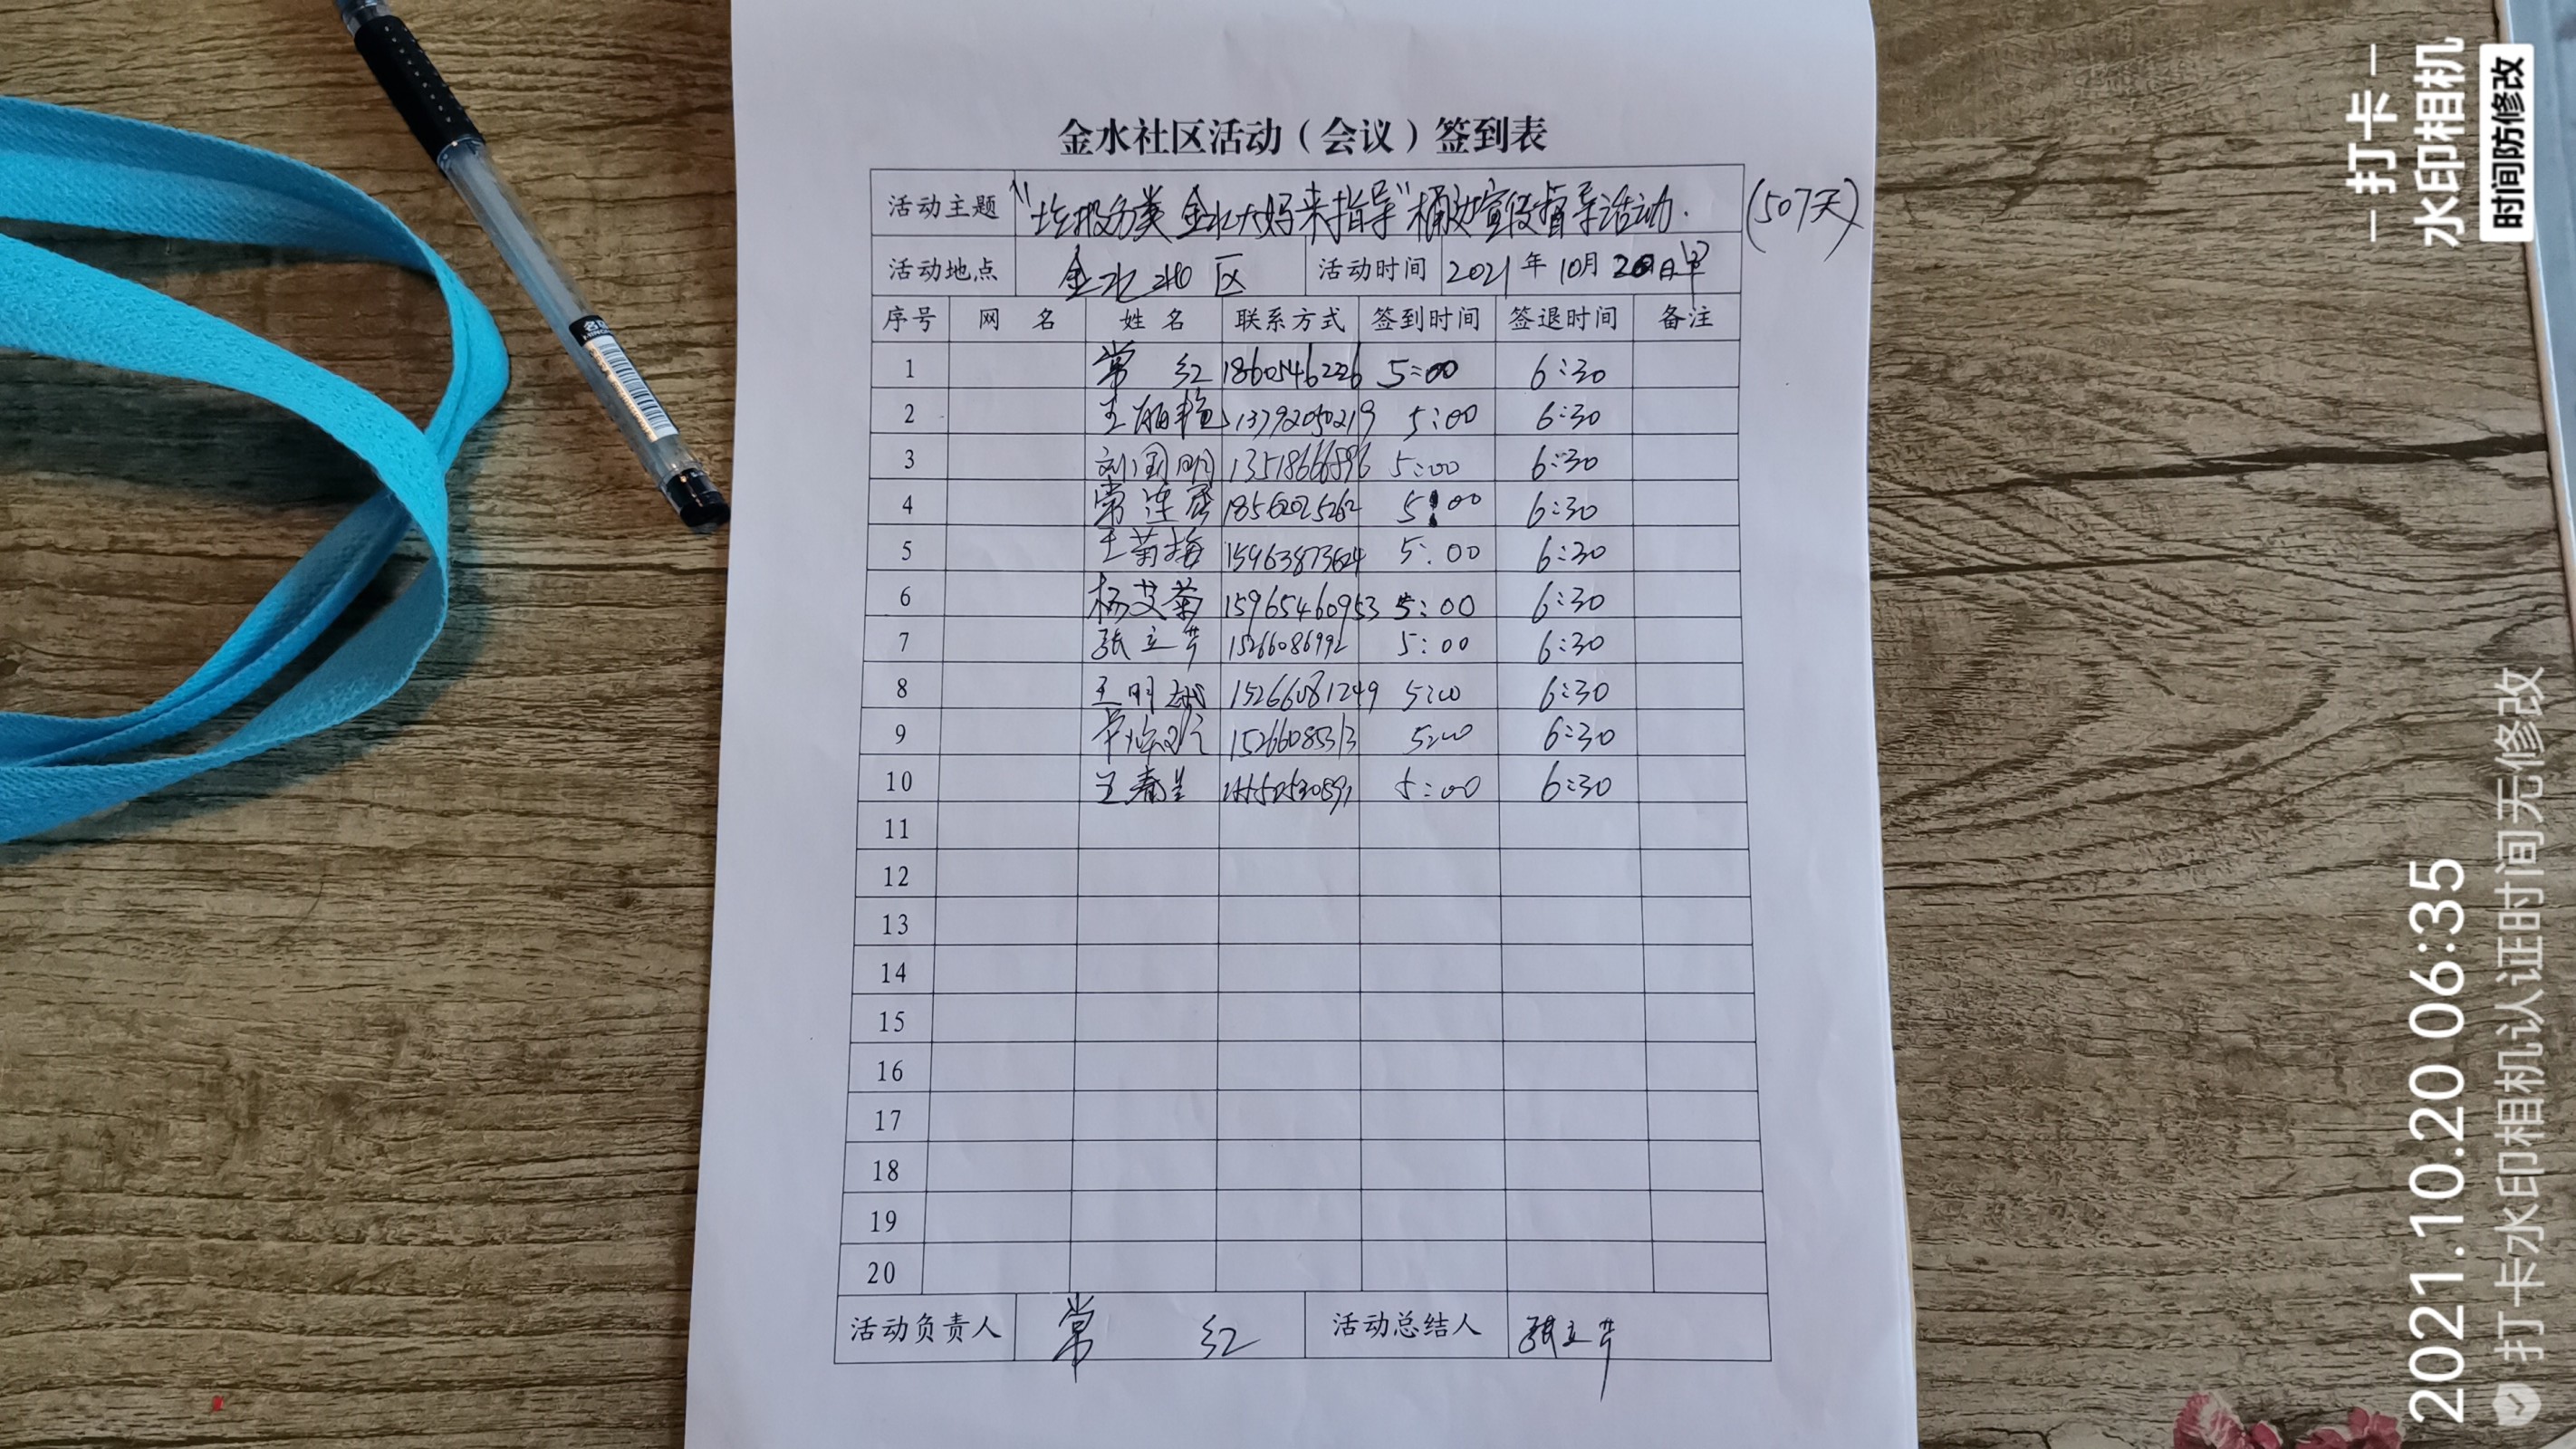 金水社区活动（会议）签到表
活动主题 "垃圾分类 金水大妈来指导"桶边宣传督导活动. (507天)
活动地点 金水社区 活动时间 2021年10月20日早
序号 网 名 姓 名 联系方式 签到时间 签退时间 备注
1 常 红 18605462226 5:00 6:30
2 王丽艳 13792050219 5:00 6:30
3 刘国明 13518666896 5:00 6:30
4 常连 18562025262 5:00 6:30
5 王菊梅 15963873624 5:00 6:30
6 杨艾菊 15965460953 5:00 6:30
7 张立芹 15266086992 5:00 6:30
8 王明 15266081249 5:00 6:30
9 15266085313 5:00 6:30
10 王春兰 5:00 6:30
11
12
13
14
15
16
17
18
19
20
活动负责人 常 红 活动总结人 张立芹
打卡
水印相机
时间防修改
2021.10.20 06:35
打卡水印相机认证时间无修改